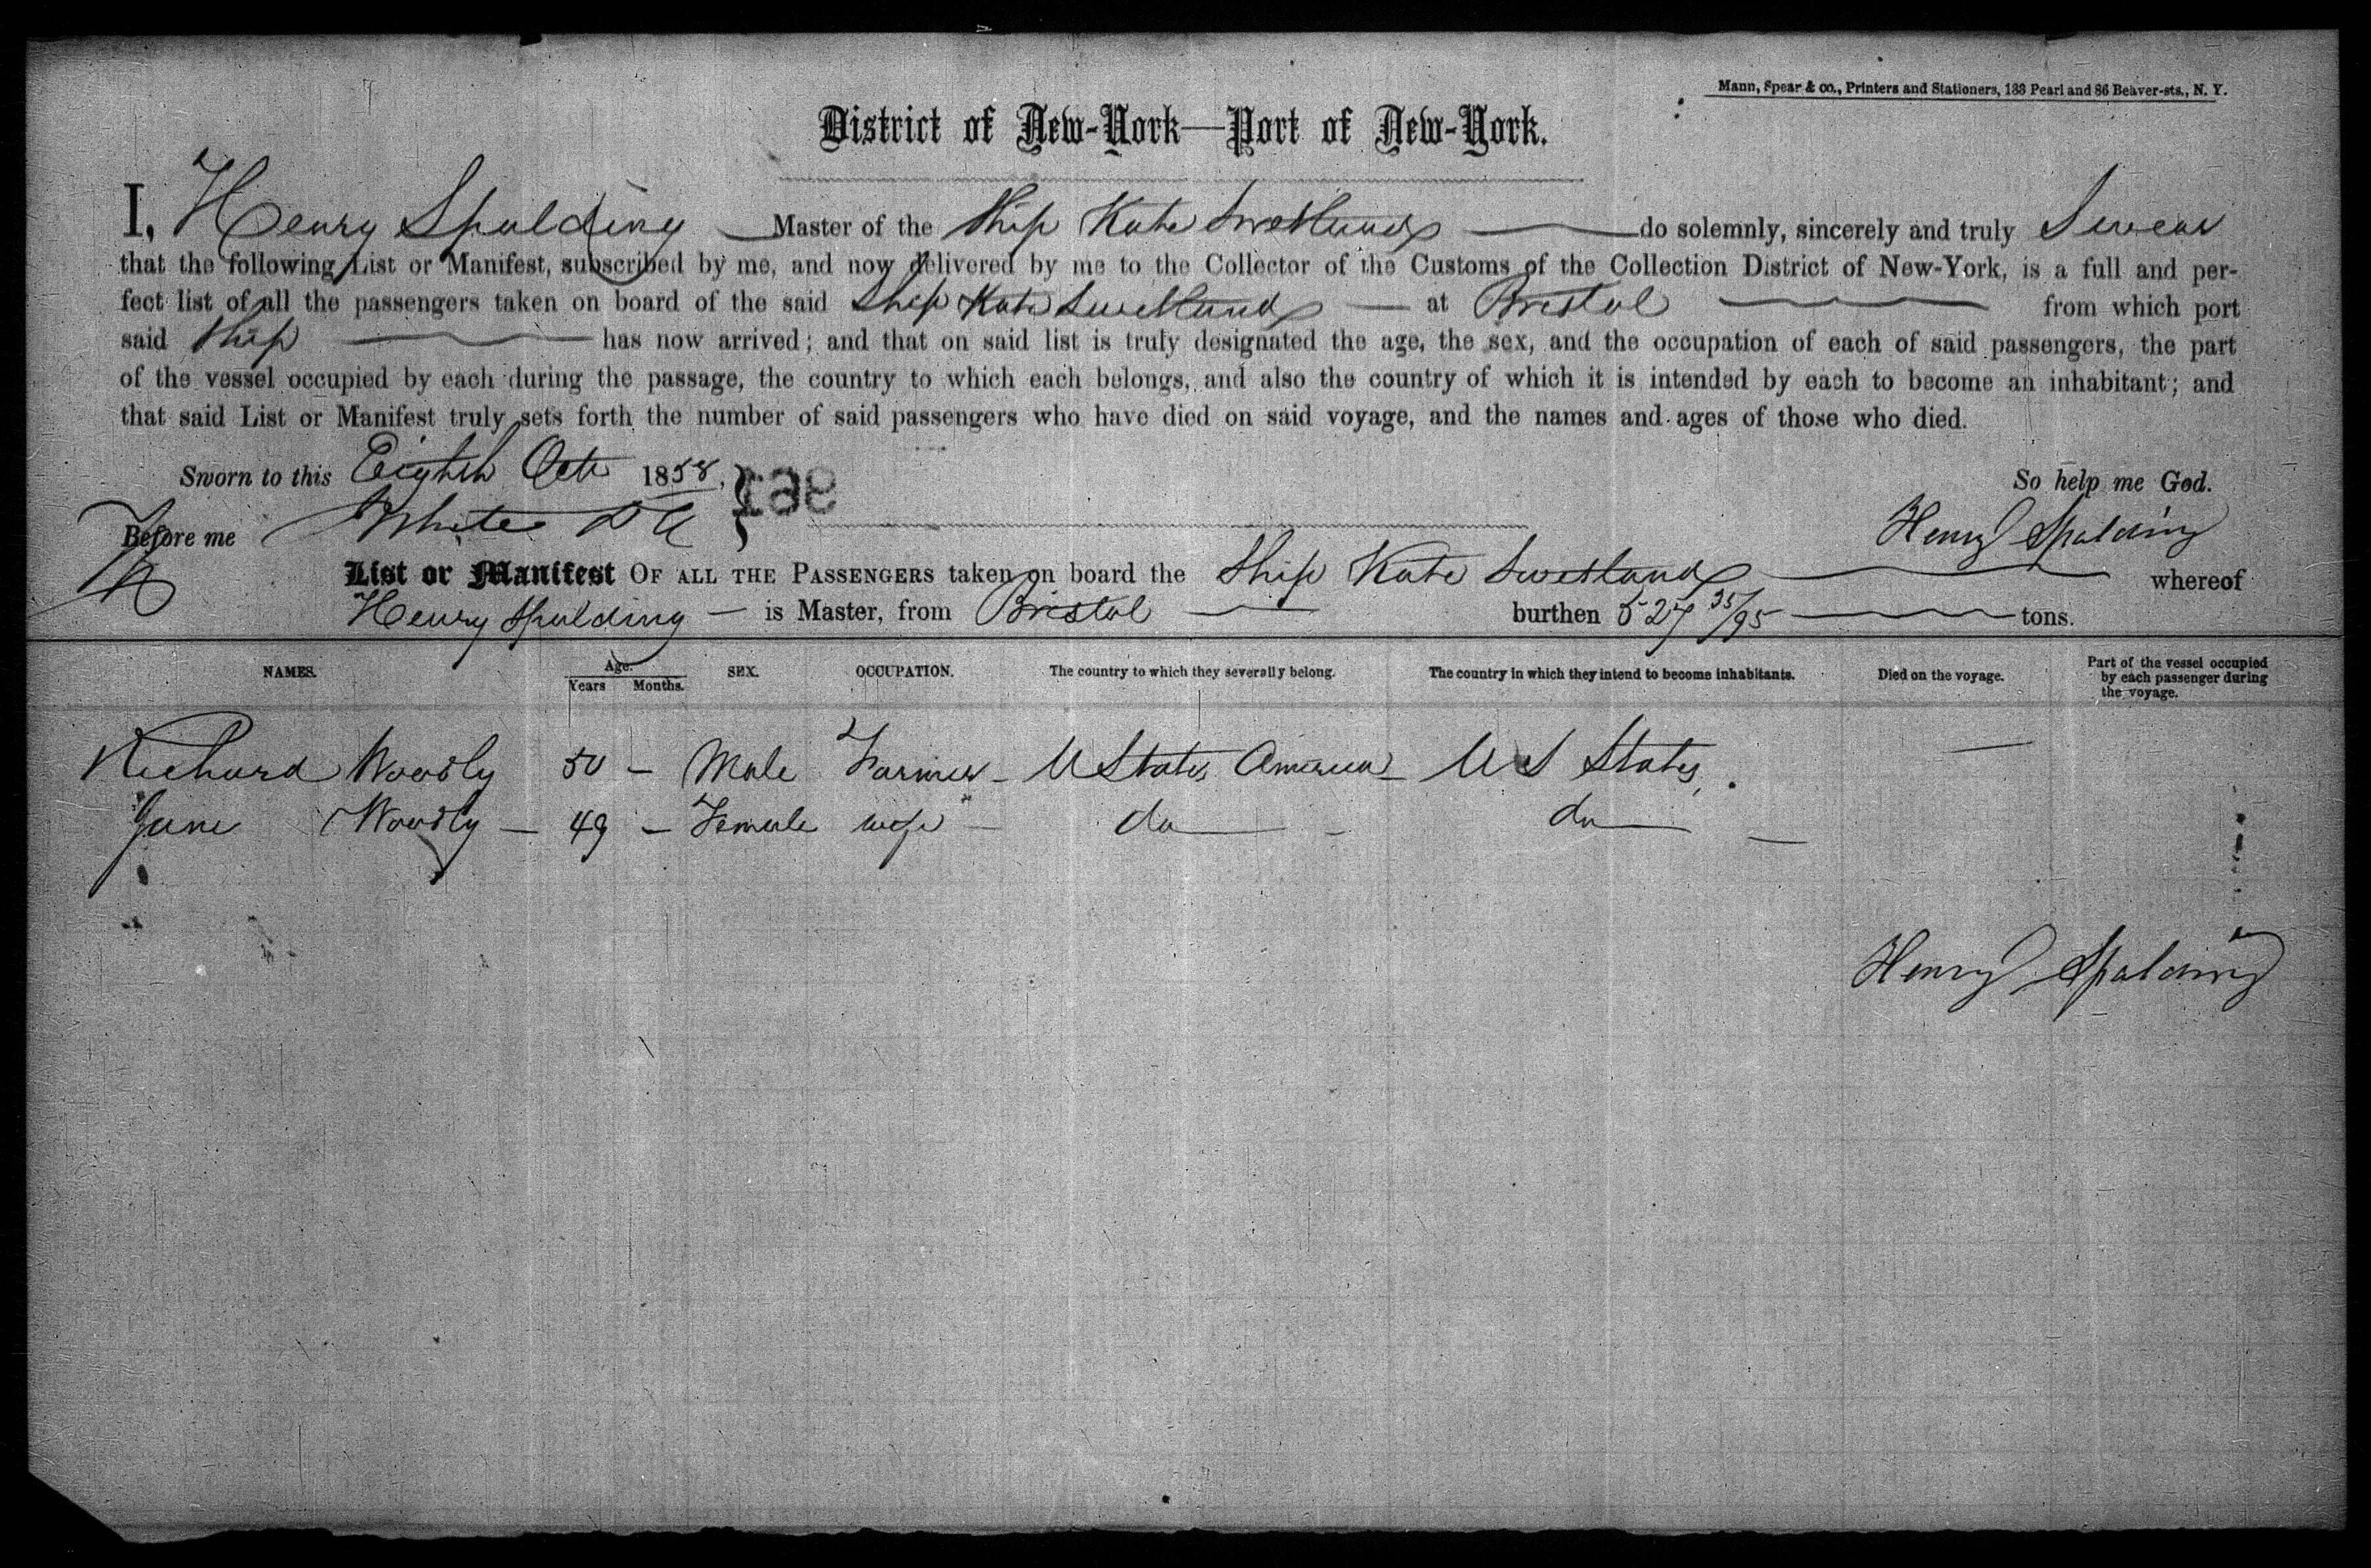 Mann, Spear & co., Printers and Stationers, 133 Pearl and 86 Beaver-sts., N. Y.
District of New-York—Port of New-York.
I, Henry Spalding Master of the Ship Kate Swetland do solemnly, sincerely and truly Swear
that the following List or Manifest, subscribed by me, and now delivered by me to the Collector of the Customs of the Collection District of New-York, is a full and per-
fect list of all the passengers taken on board of the said Ship Kate Swetland at Bristol from which port
said Ship has now arrived; and that on said list is truly designated the age, the sex, and the occupation of each of said passengers, the part
of the vessel occupied by each during the passage, the country to which each belongs, and also the country of which it is intended by each to become an inhabitant; and
that said List or Manifest truly sets forth the number of said passengers who have died on said voyage, and the names and ages of those who died.
Sworn to this Eighth Oct 1858, So help me God.
Before me White Henry Spalding
List or Manifest OF ALL THE PASSENGERS taken on board the Ship Kate Swetland whereof
Henry Spalding is Master, from Bristol burthen 527 35/95 tons.
NAMES. Age. Years Months. SEX. OCCUPATION. The country to which they severally belong. The country in which they intend to become inhabitants. Died on the voyage. Part of the vessel occupied by each passenger during the voyage.
Richard Woodly 50 – Male Farmer – U States America – U S States.
Jane Woodly – 49 – Female wife – do – do –
Henry Spalding